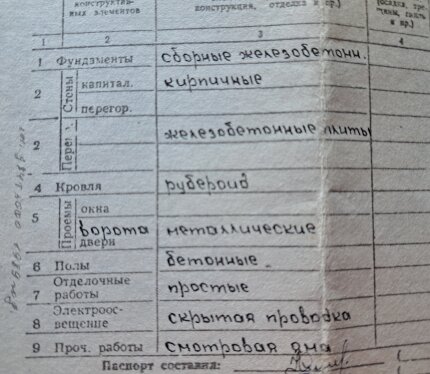 конструктив-
ных элементов
конструкция, отделка и пр.)
(осадка, тре-
щины, гниль
и пр.)
1 2 3 4
1 Фундаменты сборные железобетонн.
2 Стены капитал. кирпичные
перегор.
2 железобетонные плиты
4 Кровля рубероид
5 Проемы окна
ворота металлические
двери
6 Полы бетонные
7 Отделочные работы простые
8 Электроос-
вещение скрытая проводка
9 Проч. работы смотровая яма
Паспорт составил: